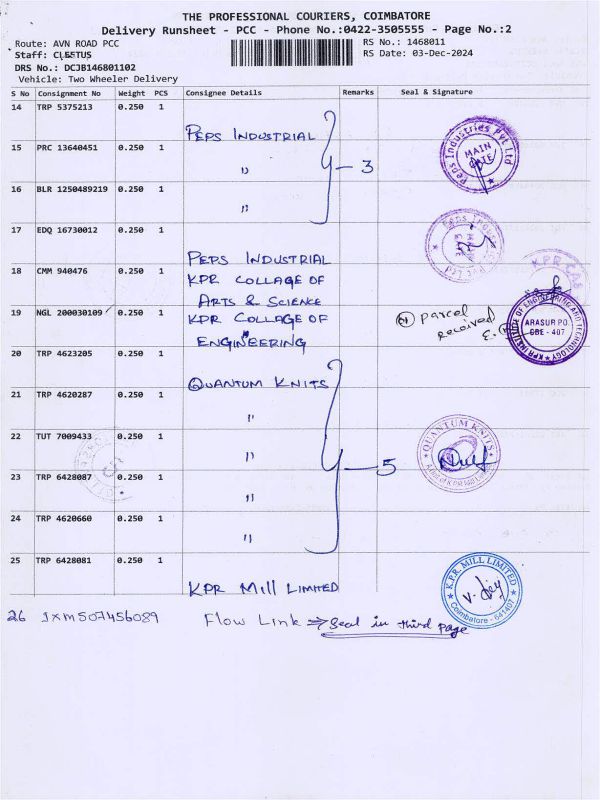 THE PROFESSIONAL COURIERS, COIMBATORE
Delivery Runsheet - PCC - Phone No.:0422-3505555 - Page No.:2
Route: AVN ROAD PCC RS No.: 1468011
Staff: CLEETUS RS Date: 03-Dec-2024
DRS No.: DCJB146801102
Vehicle: Two Wheeler Delivery
S No Consignment No Weight PCS Consignee Details Remarks Seal & Signature
14 TRP 5375213 0.250 1
PEPS INDUSTRIAL
Peps Industries Pvt Ltd
MAIN GATE
15 PRC 13640451 0.250 1
" 3
16 BLR 1250489219 0.250 1
"
17 EDQ 16730012 0.250 1
PEPS INDUSTRIAL
18 CMM 940476 0.250 1
KPR COLLAGE OF
ARTS & SCIENCE
KPR CAS
19 NGL 200030109 0.250 1
KPR COLLAGE OF
ENGINEERING
parcel
received
KPR INSTITUTE OF ENGINEERING AND TECHNOLOGY
ARASUR PO.
CBE - 407
20 TRP 4623205 0.250 1
QUANTUM KNITS
21 TRP 4620287 0.250 1
"
22 TUT 7009433 0.250 1
"
QUANTUM KNITS
5
23 TRP 6428087 0.250 1
"
24 TRP 4620660 0.250 1
"
25 TRP 6428081 0.250 1
KPR MILL LIMITED
K.P.R. MILL LIMITED
Coimbatore - 641407
26 JXM507456089 Flow Link ⇒ Seal in third page